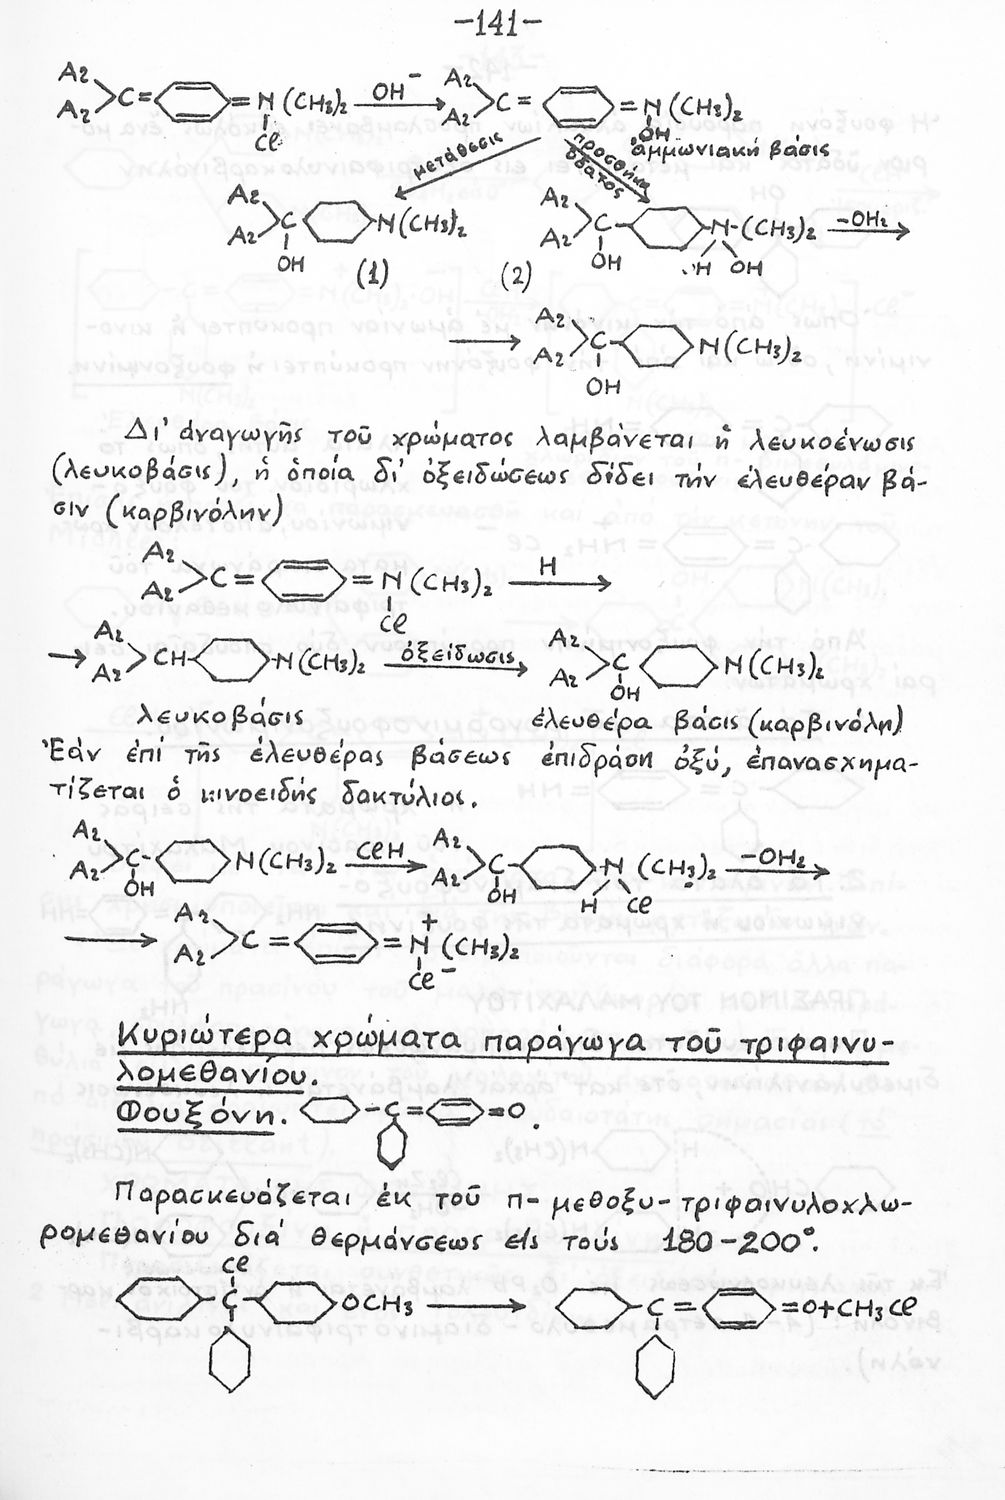 -141-
Ar
Ar C= =N(CH3)2 OH⁻ Ar
Ar C= =N(CH3)2
Cl
OH
ἀμμωνιακή βάσις
μετάθεσις
προσθήκη ὕδατος
Ar
Ar C N(CH3)2
OH
(1)
(2)
Ar
Ar C- -N-(CH3)2 -OH2
OH H OH
Ar
Ar C- N(CH3)2
OH
Δι' ἀναγωγῆς τοῦ χρώματος λαμβάνεται ἡ λευκοένωσις
(λευκοβάσις), ἡ ὁποία δι' ὀξειδώσεως δίδει τήν ἐλευθέραν βά-
σιν (καρβινόλην)
Ar
Ar C= =N(CH3)2 H
Cl
Ar
Ar CH- -N(CH3)2 ὀξείδωσις Ar
Ar C N(CH3)2
OH
λευκοβάσις ἐλευθέρα βάσις (καρβινόλη)
Ἐάν ἐπί τῆς ἐλευθέρας βάσεως ἐπιδράση ὀξύ, ἐπανασχημα-
τίζεται ὁ κινοειδής δακτύλιος.
Ar
Ar C- N(CH3)2 ClH Ar
Ar C N(CH3)2 -OH2
OH OH H Cl
Ar
Ar C= =N⁺(CH3)2
Cl⁻
Κυριώτερα χρώματα παράγωγα τοῦ τριφαινυ-
λομεθανίου.
Φουξόνη. -C= =O .
Παρασκευάζεται ἐκ τοῦ π- μεθοξυ-τριφαινυλοχλω-
ρομεθανίου διά θερμάνσεως εἰς τούς 180-200°.
Cl
-C- OCH3 -C= =O+CH3Cl